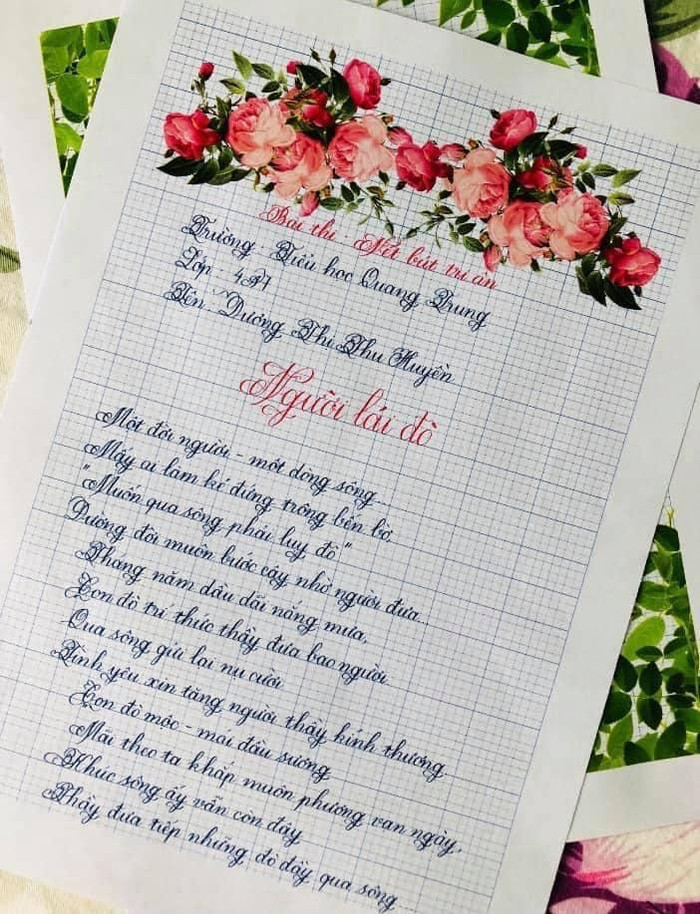 Bài thi - Nét bút tri ân
Trường - Tiểu học Quang Trung
Lớp - 4A7
Tên - Dương Thị Thu Huyền
Người lái đò
Một đời người - một dòng sông...
Mấy ai làm kẻ đứng trông bến bờ,
"Muốn qua sông phải luỵ đò"
Đường đời muôn bước cậy nhờ người đưa...
Tháng năm dầu dãi nắng mưa,
Con đò trí thức thầy đưa bao người
Qua sông gửi lại nụ cười
Tình yêu xin tặng người thầy kính thương
Con đò mộc - mái đầu sương
Mãi theo ta khắp muôn phương vạn ngày,
Khúc sông ấy vẫn còn đây
Thầy đưa tiếp những đò đầy qua sông